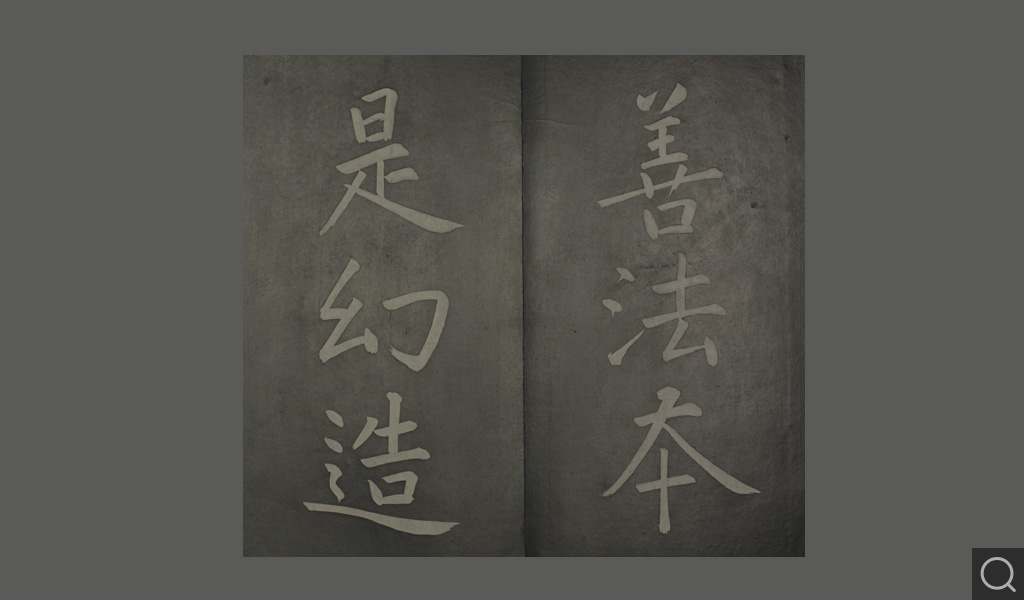 善法本
是幻造